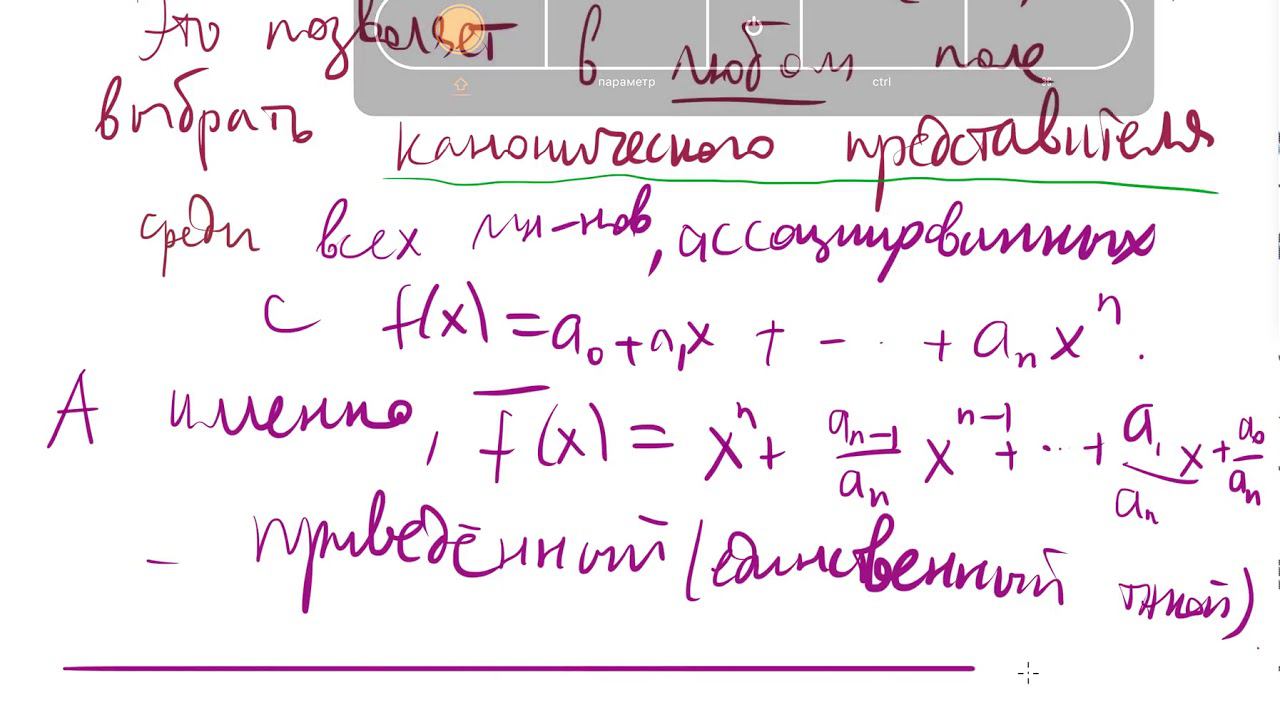 Это позволяет в любом поле
параметр ctrl ⌘
выбрать канонического представителя
среди всех мн-нов, ассоциированных
с f(x) = a₀ + a₁x + - · + aₙxⁿ.
А именно, f̅(x) = xⁿ + aₙ₋₁/aₙ xⁿ⁻¹ + ··· + a₁/aₙ x + a₀/aₙ
– приведённый (единственный такой)